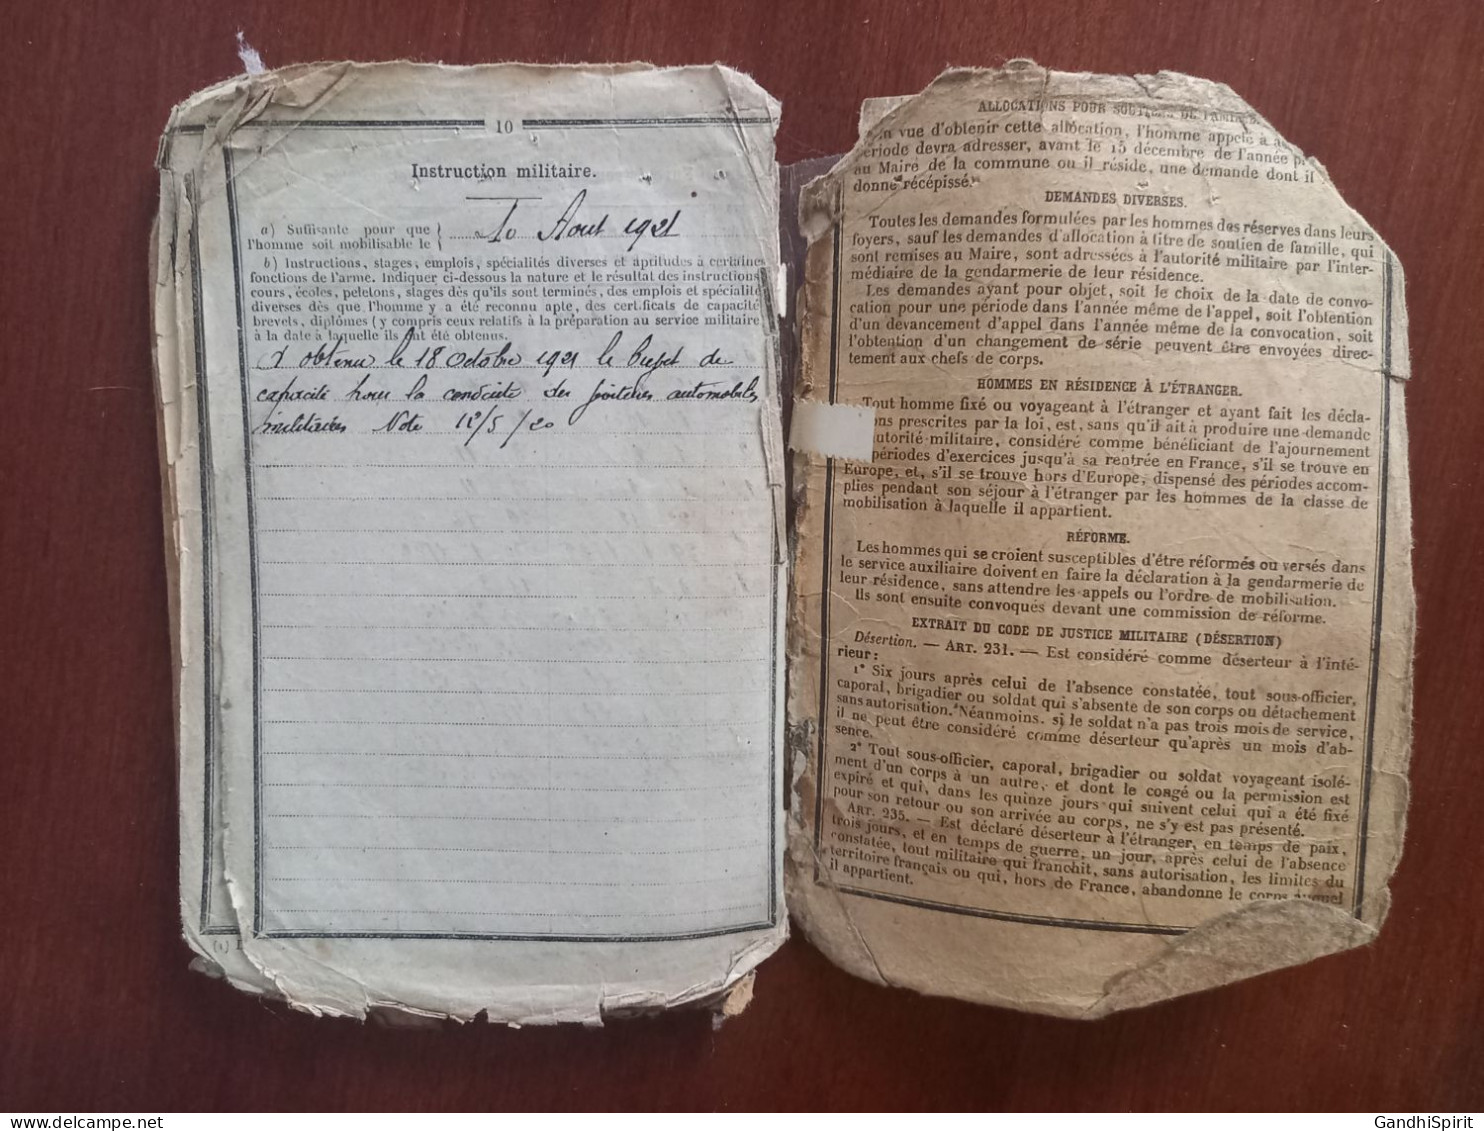 10
Instruction militaire.
a) Suffisante pour que
l'homme soit mobilisable le
10 Aout 1921
b) Instructions, stages, emplois, spécialités diverses et aptitudes à certaines
fonctions de l'arme. Indiquer ci-dessous la nature et le résultat des instructions
cours, écoles, pelotons, stages dès qu'ils sont terminés, des emplois et spécialité
diverses dès que l'homme y a été reconnu apte, des certificats de capacité
brevets, diplômes (y compris ceux relatifs à la préparation au service militaire
à la date à laquelle ils ont été obtenus.
A obtenu le 18 Octobre 1921 le brevet de
capacité pour la conduite des voitures automobiles
militaires Note 12/5/20
(1)
ALLOCATIONS POUR SOUTIENS DE FAMILLE
En vue d'obtenir cette allocation, l'homme appelé à a
période devra adresser, avant le 15 décembre de l'année pr
au Maire de la commune ou il réside, une demande dont il
donne récépissé.
DEMANDES DIVERSES.
Toutes les demandes formulées par les hommes des réserves dans leurs
foyers, sauf les demandes d'allocation à titre de soutien de famille, qui
sont remises au Maire, sont adressées à l'autorité militaire par l'inter-
médiaire de la gendarmerie de leur résidence.
Les demandes ayant pour objet, soit le choix de la date de convo-
cation pour une période dans l'année même de l'appel, soit l'obtention
d'un devancement d'appel dans l'année même de la convocation, soit
l'obtention d'un changement de série peuvent être envoyées direc-
tement aux chefs de corps.
HOMMES EN RÉSIDENCE À L'ÉTRANGER.
Tout homme fixé ou voyageant à l'étranger et ayant fait les décla-
ons prescrites par la loi, est, sans qu'il ait à produire une demande
autorité militaire, considéré comme bénéficiant de l'ajournement
périodes d'exercices jusqu'à sa rentrée en France, s'il se trouve en
Europe, et, s'il se trouve hors d'Europe, dispensé des périodes accom-
plies pendant son séjour à l'étranger par les hommes de la classe de
mobilisation à laquelle il appartient.
RÉFORME.
Les hommes qui se croient susceptibles d'être réformés ou versés dans
le service auxiliaire doivent en faire la déclaration à la gendarmerie de
leur résidence, sans attendre les appels ou l'ordre de mobilisation.
Ils sont ensuite convoqués devant une commission de réforme.
EXTRAIT DU CODE DE JUSTICE MILITAIRE (DÉSERTION)
Désertion. — ART. 231. — Est considéré comme déserteur à l'inté-
rieur :
1° Six jours après celui de l'absence constatée, tout sous-officier,
caporal, brigadier ou soldat qui s'absente de son corps ou détachement
sans autorisation. Néanmoins. si le soldat n'a pas trois mois de service,
il ne peut être considéré comme déserteur qu'après un mois d'ab-
sence.
2° Tout sous-officier, caporal, brigadier ou soldat voyageant isolé-
ment d'un corps à un autre, et dont le congé ou la permission est
expiré et qui, dans les quinze jours qui suivent celui qui a été fixé
pour son retour ou son arrivée au corps, ne s'y est pas présenté.
ART. 235. — Est déclaré déserteur à l'étranger, en temps de paix,
trois jours, et en temps de guerre, un jour, après celui de l'absence
constatée, tout militaire qui franchit, sans autorisation, les limites du
territoire français ou qui, hors de France, abandonne le corps auquel
il appartient.
delcampe.net
GandhiSpirit